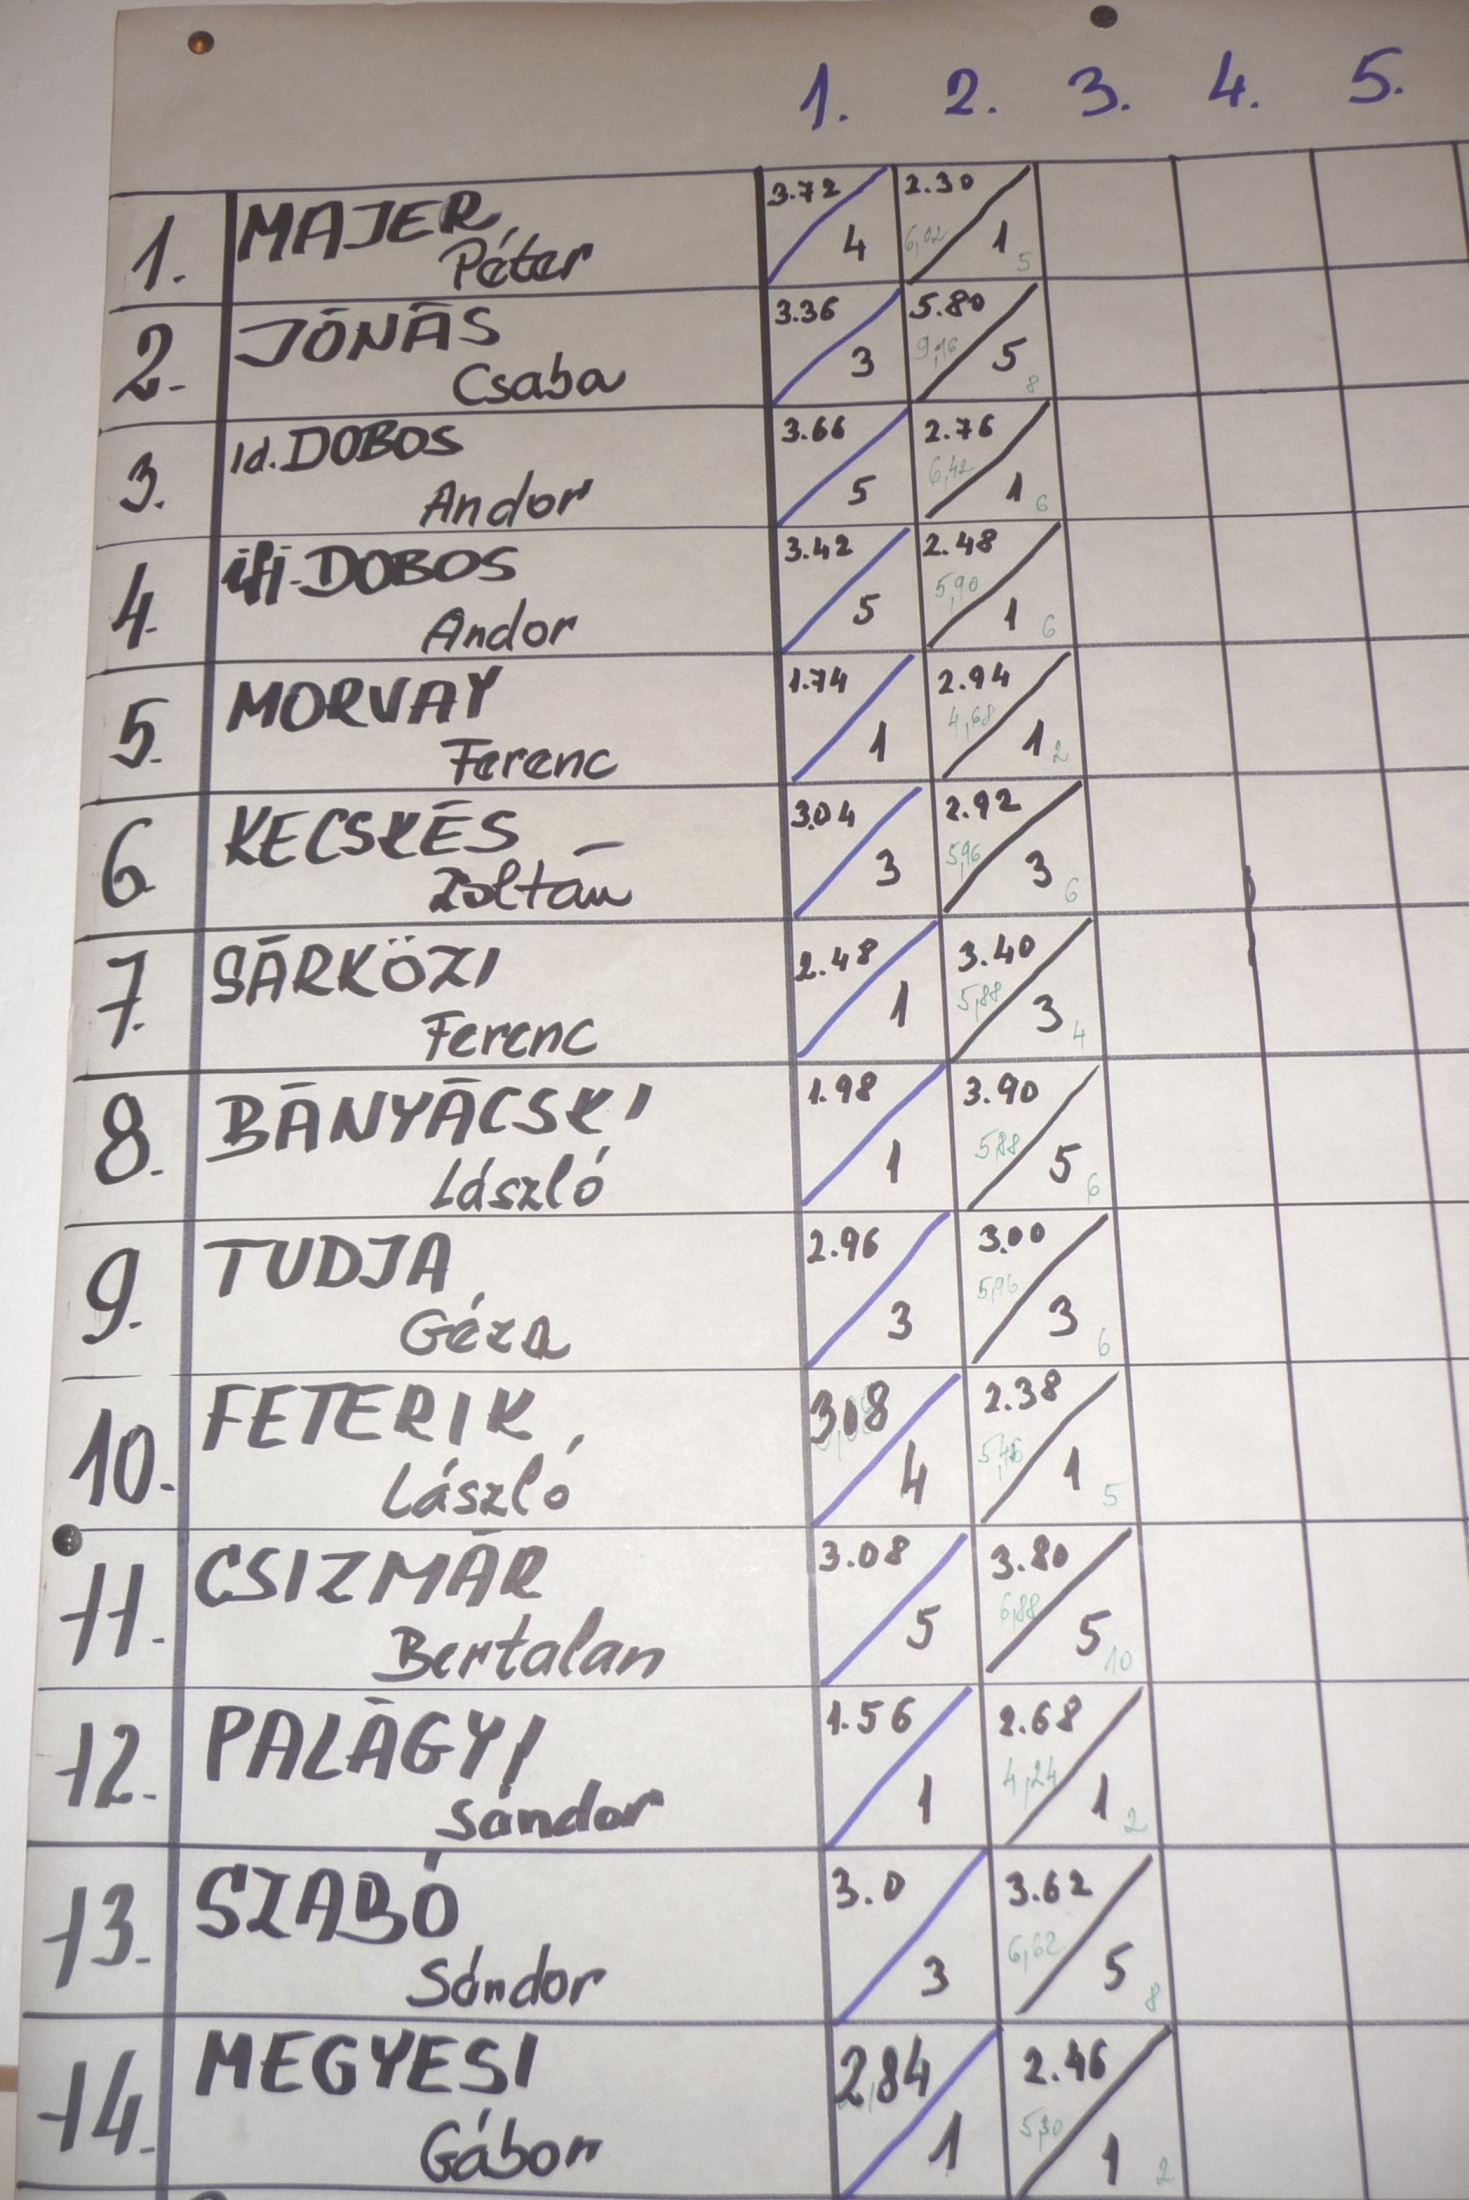 1. 2. 3. 4. 5.
1. MAJER Péter 3.72 4 2.30 6,02 1 5
2. JÓNÁS Csaba 3.36 3 5.80 9,16 5 8
3. Id. DOBOS Andor 3.66 5 2.76 6,42 1 6
4. ifj. DOBOS Andor 3.42 5 2.48 5,90 1 6
5. MORVAY Ferenc 1.74 1 2.94 4,68 1 2
6 KECSKÉS Zoltán 3.04 3 2.92 5,96 3 6
7. SÁRKÖZI Ferenc 2.48 1 3.40 5,88 3 4
8. BÁNYÁCSKI László 1.98 1 3.90 5,88 5 6
9. TUDJA Géza 2.96 3 3.00 5,96 3 6
10. FETERIK László 3.08 4 2.38 5,46 1 5
11. CSIZMÁR Bertalan 3.08 5 3.80 6,88 5 10
12. PALÁGYI Sándor 1.56 1 2.68 4,24 1 2
13. SZABÓ Sándor 3.0 3 3.62 6,62 5 8
14. MEGYESI Gábor 2,84 1 2.46 5,30 1 2